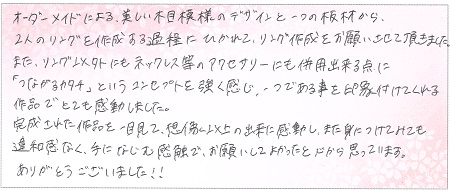 オーダーメイドによる、美しい木目模様のデザインと一つの板材から、
2人のリングを作成する過程にひかれて、リング作成をお願いさせて頂きました。
また、リング以外にもネックレス等のアクセサリーにも併用出来る点に
「つながるカタチ」というコンセプトを強く感じ、一つである事を印象付けてくれる
作品でとても感動しました。
完成された作品を一目見て、想像以上の出来に感動し、また身につけてみても
違和感なく、手になじむ感触で、お願いしてよかったと心から思っています。
ありがとうございました!!